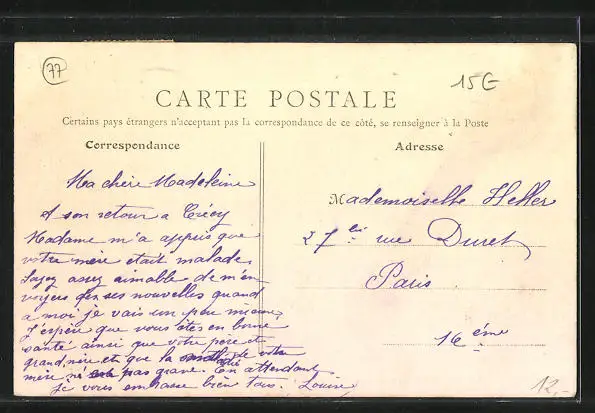 77
15E
CARTE POSTALE
Certains pays étrangers n'acceptant pas la correspondance de ce côté, se renseigner à la Poste
Correspondance
Adresse
Ma chère Madeleine
A son retour a Crécy
Madame m'a appris que
votre mère était malade.
Soyez assez aimable de m'en
voyer des ses nouvelles quand
a moi je vais un peu mieux
J'espère que vous êtes en bonne
santé ainsi que votre père et
grand mère et que la de votre
mère n'est pas grave. En attendant
je vous embrasse bien tous. Louise
Mademoiselle Heller
27 bis rue Duret
Paris
16 éme
12,-